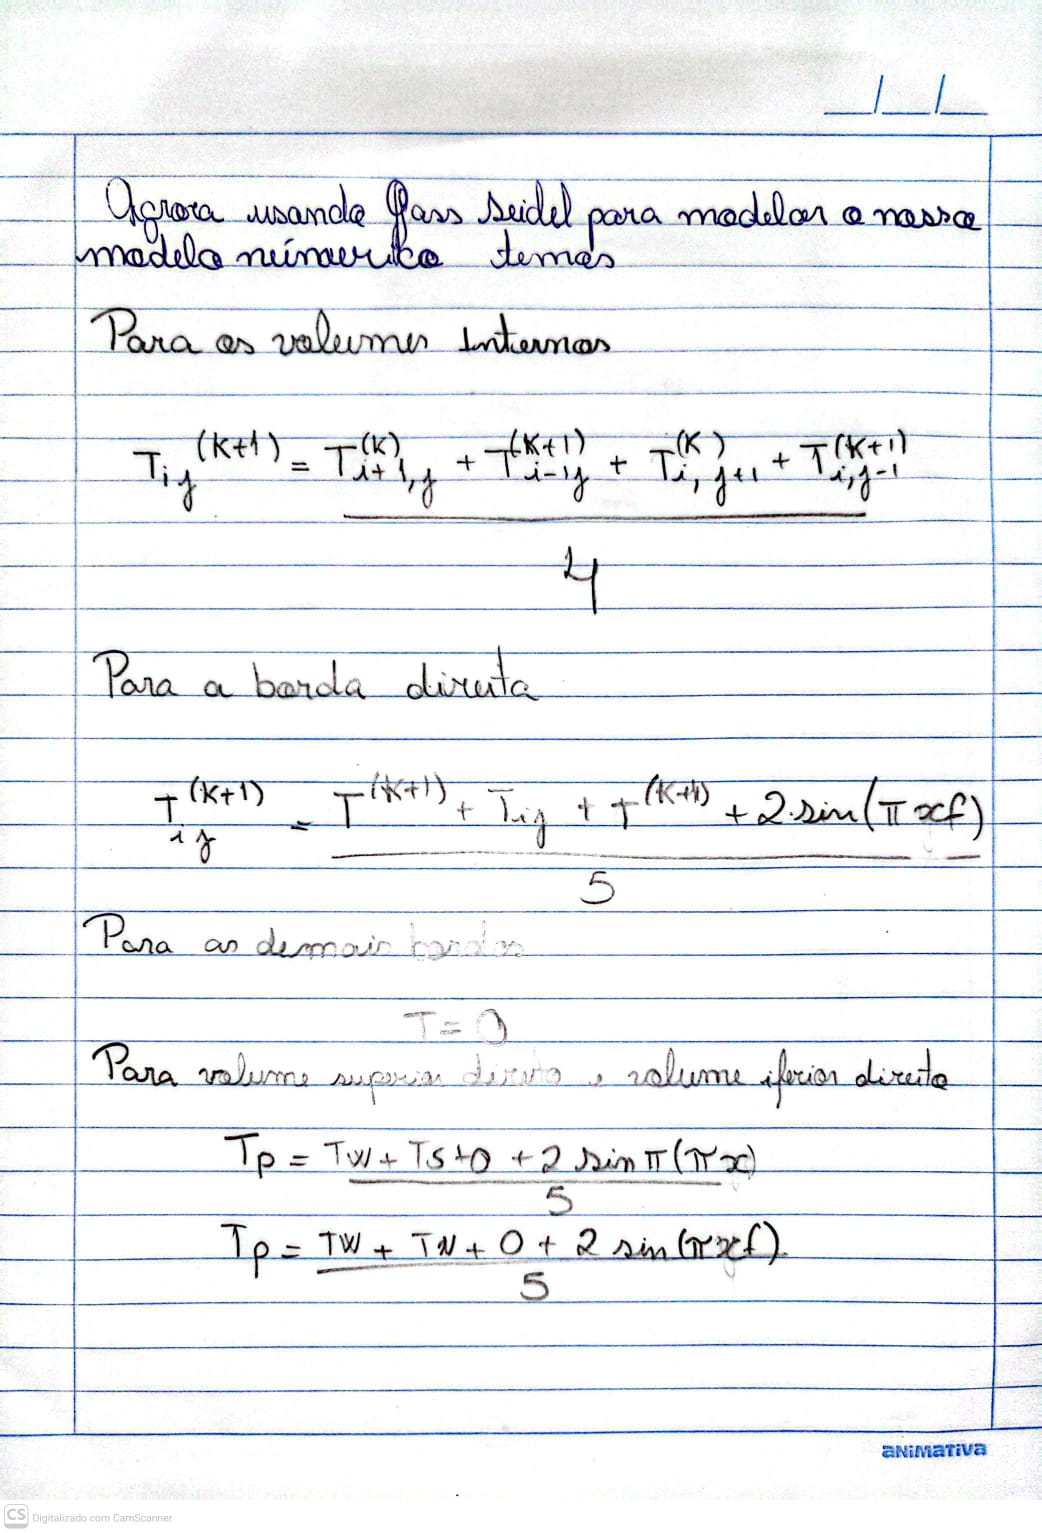 __/__/__
Agrora usando Gass Seidel para modelar o nosso
modelo números temos
Para os volumes Internos
T_{ij}^{(K+1)} = T_{i+1,j}^{(K)} + T_{i-1j}^{(K+1)} + T_{i,j+1}^{(K)} + T_{i,j-1}^{(K+1)}
4
Para a borda direita
T_{ij}^{(K+1)} = T^{(K+1)} + T_{ij} + T^{(K+1)} + 2.sin(π xf)
5
Para as demais bordas
T = 0
Para volume superior direito e volume iferior direito
Tp = TW + TS + 0 + 2 sin π (π x)
5
Tp = TW + TN + 0 + 2 sin (π xf)
5
aNiMaTiVa
CS Digitalizado com CamScanner